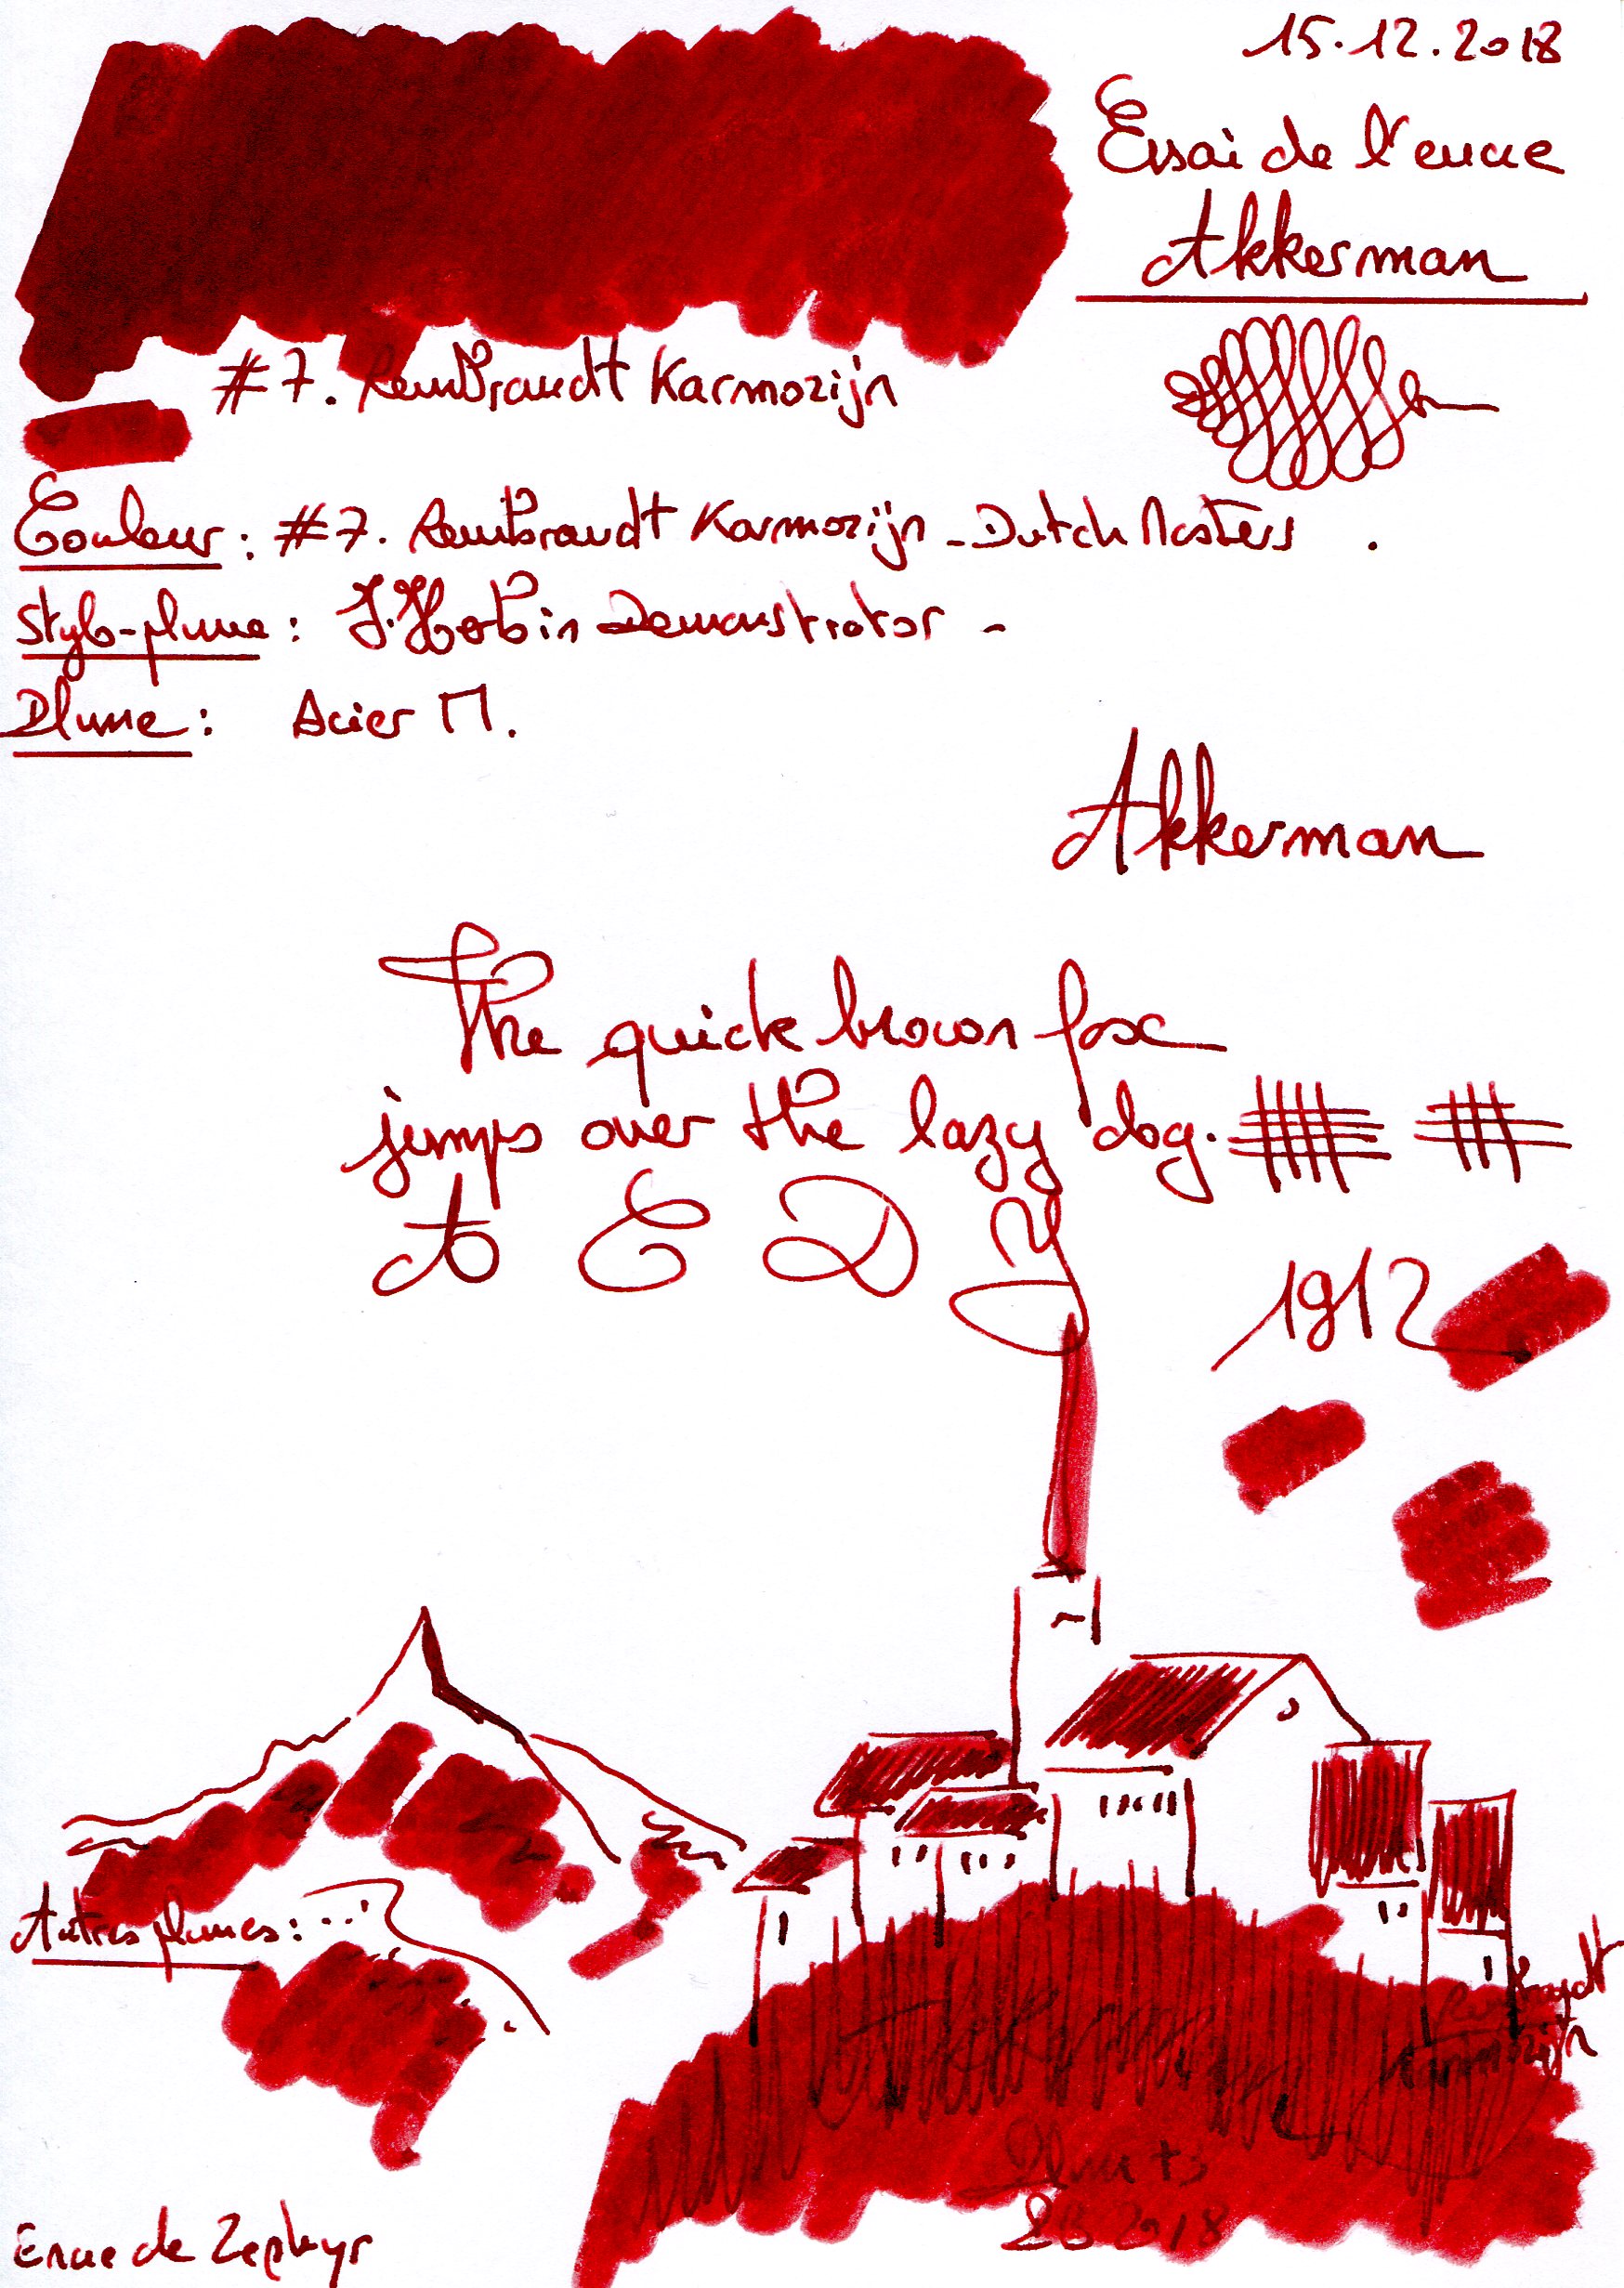 15.12.2018
Essai de l'encre
Akkerman
#7. Rembrandt Karmozijn
Couleur : #7. Rembrandt Karmozijn - Dutch Masters .
Stylo-plume : J. Herbin Demonstrator -
Plume : Acier M.
Akkerman
The quick brown fox
jumps over the lazy dog.
A E D Y
1912
Autres plumes : ...
Rembrandt
Karmozijn
Akkerman
2018
Encre de Zephyr